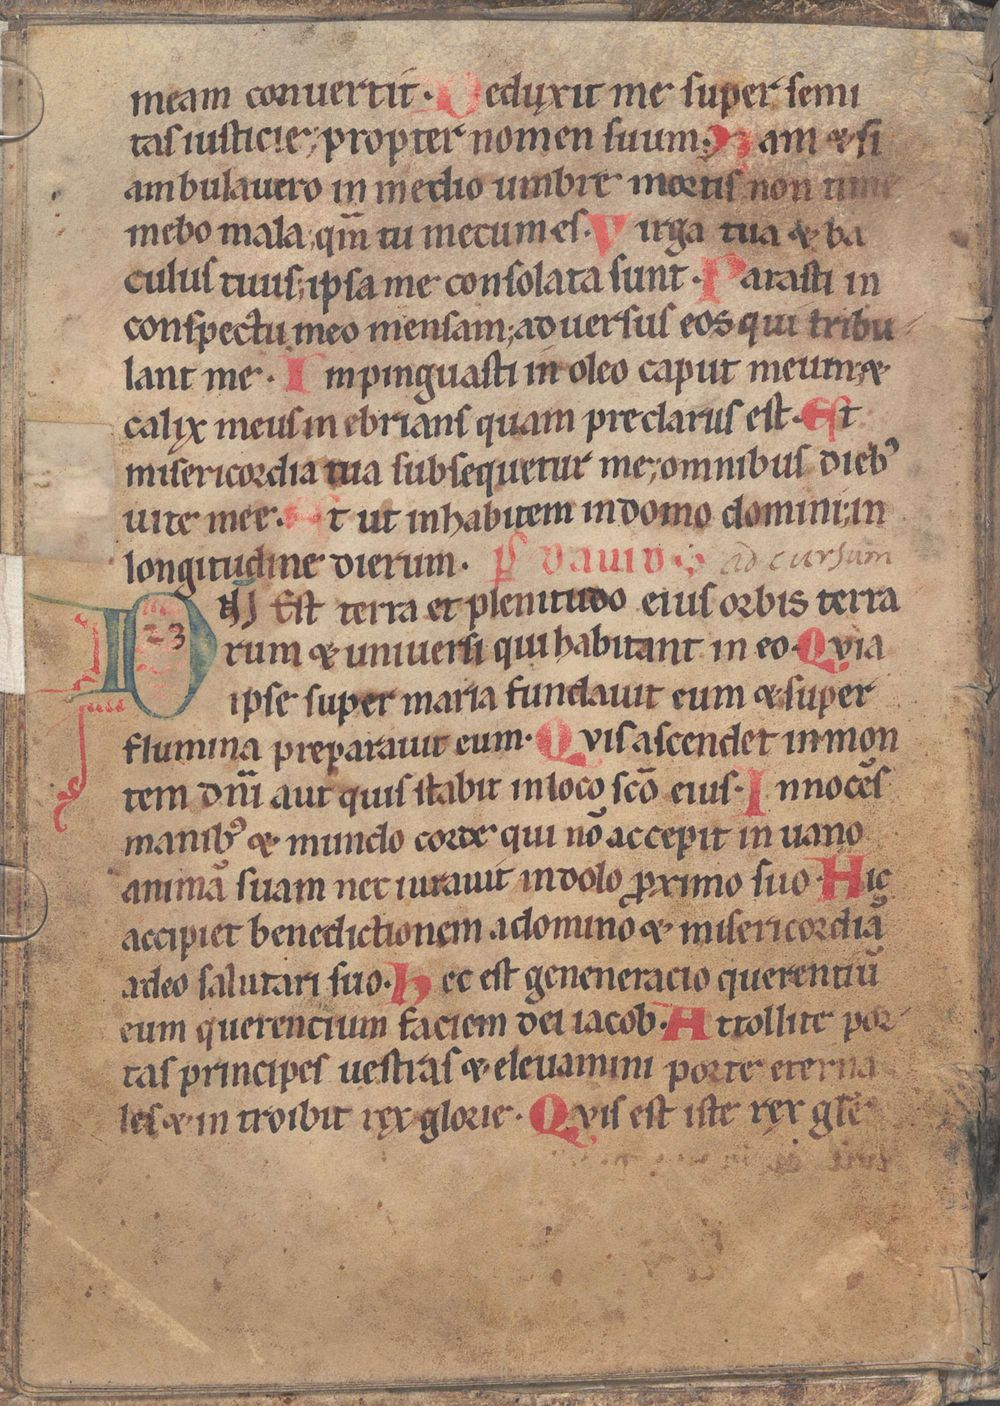 meam conuertit. Deduxit me super semi
tas iusticie; propter nomen suum. Nam & si
ambulauero in medio umbre mortis non time
mebo mala; qm̄ tu mecum es. Virga tua & ba
culus tuus; ipsa me consolata sunt. Parasti in
conspectu meo mensam; aduersus eos qui tribu
lant me. Impinguasti in oleo caput meum; &
calix meus inebrians quam preclarus est. Et
misericordia tua subsequetur me; omnibus dieb᾿
uite mee. Et ut inhabitem in domo domini; in
longitudine dierum. ps dauid ad cursum
Dn̄j Est terra et plenitudo eius orbis terra
23 rum & uniuersi qui habitant in eo. Quia
ipse super maria fundauit eum & super
flumina preparauit eum. Quis ascendet in mon
tem dn̄i aut quis stabit in loco sc̄o eius. Innocēs
manib᾿ & mundo corde qui nō accepit in uano
animā suam nec iurauit in dolo ꝓximo suo. Hic
accipiet benedictionem a domino & misericordiā
a deo salutari suo. Hec est geneneracio querentiū
eum querencium faciem dei iacob. Attollite por
tas principes uestras & eleuamini porte eterna
les & introibit rex glorie. Quis est iste rex glē